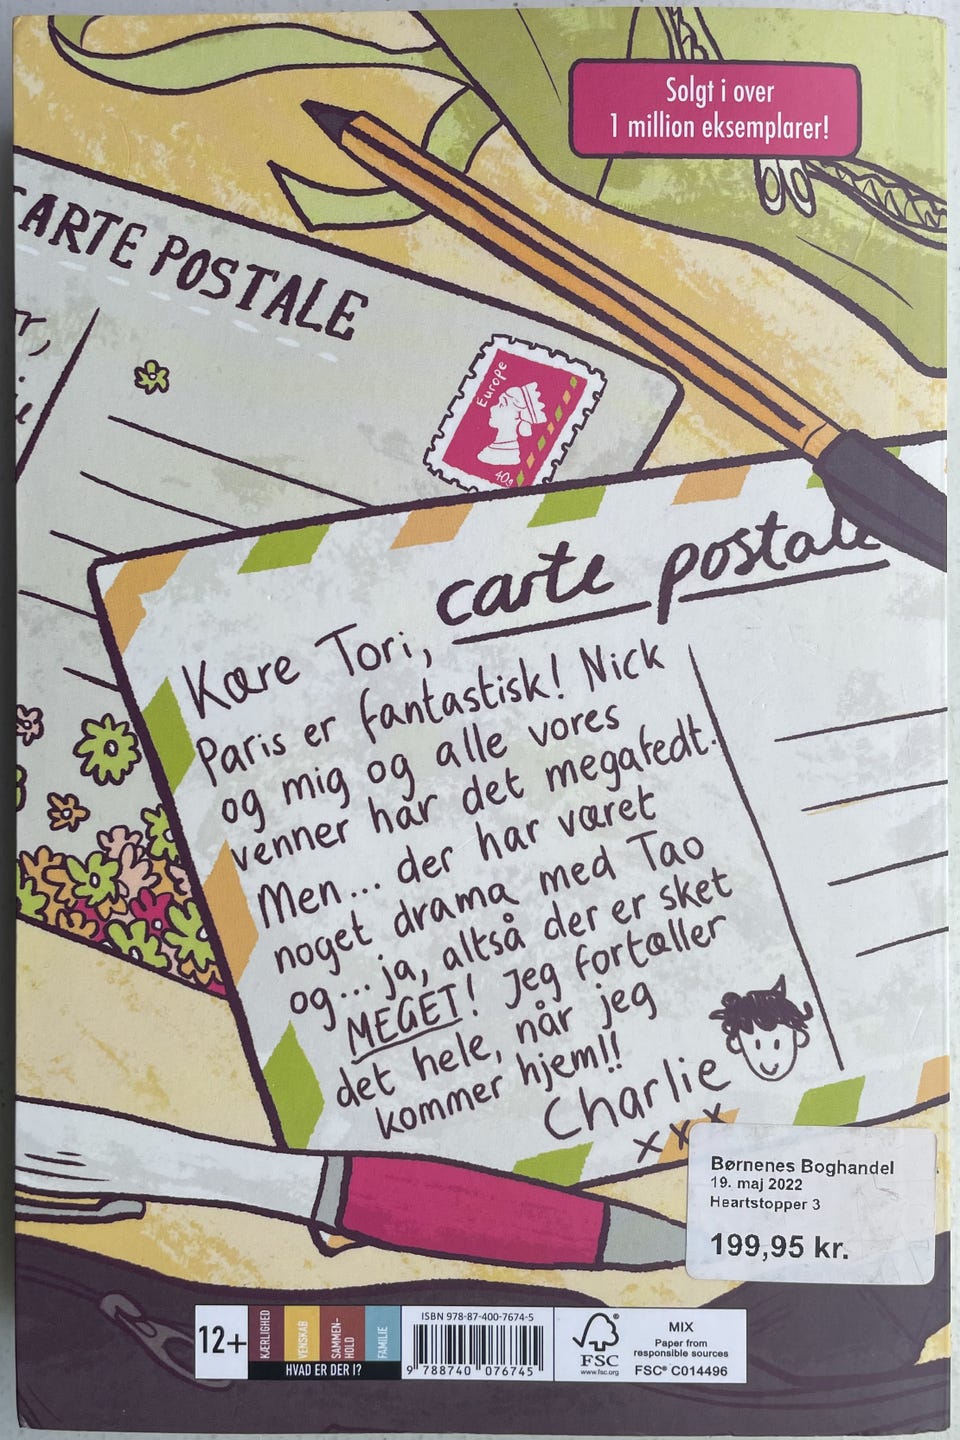 Solgt i over
1 million eksemplarer!
CARTE POSTALE
Europe
carte postale
Kære Tori,
Paris er fantastisk! Nick
og mig og alle vores
venner har det megafedt.
Men... der har været
noget drama med Tao
og... ja, altså der er sket
MEGET! Jeg fortæller
det hele, når jeg
kommer hjem!!
Charlie
xxx
Børnenes Boghandel
19. maj 2022
Heartstopper 3
199,95 kr.
12+
KÆRLIGHED
VENSKAB
SAMMEN-
HOLD
FAMILIE
HVAD ER DER I?
ISBN 978-87-400-7674-5
9 788740 076745
FSC®
www.fsc.org
MIX
Paper from
responsible sources
FSC® C014496